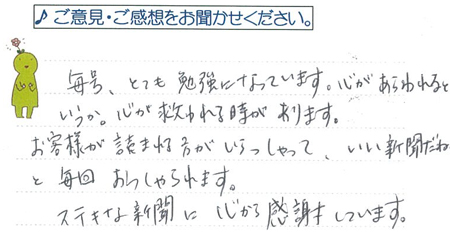 ♪ご意見・ご感想をお聞かせください。
毎号、とても勉強になっています。心があらわれると
いうか。心が救われる時があります。
お客様が読まれる方がいらっしゃって、いい新聞だね
と毎回おっしゃられます。
ステキな新聞に心から感謝しています。